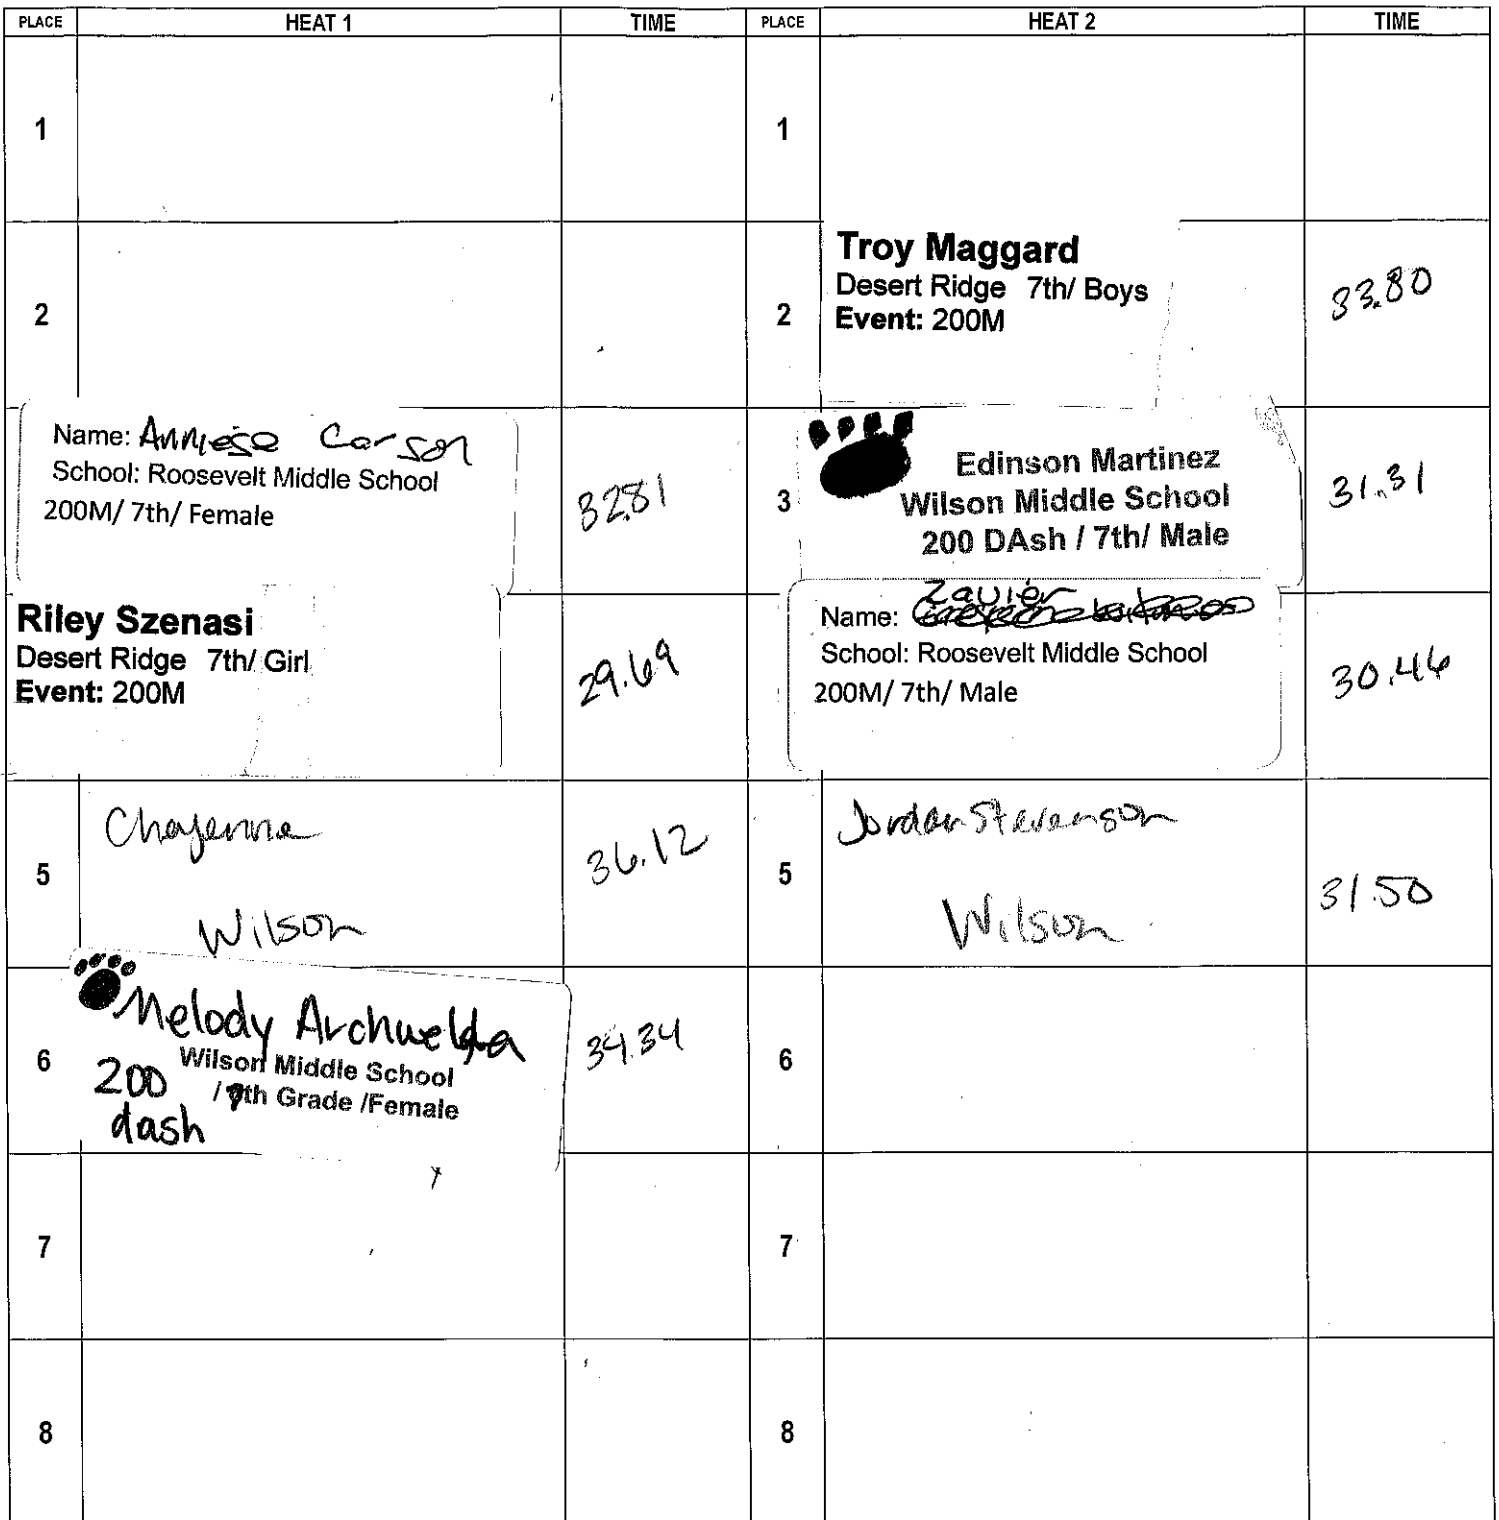 PLACE HEAT 1 TIME PLACE HEAT 2 TIME
1 1
2
2
Troy Maggard
Desert Ridge 7th/ Boys
Event: 200M
33.80
Name: Anniese Carson
School: Roosevelt Middle School
200M/ 7th/ Female
32.81
3
Edinson Martinez
Wilson Middle School
200 DAsh / 7th/ Male
31.31
Riley Szenasi
Desert Ridge 7th/ Girl
Event: 200M
29.69
Zavier
Name:
School: Roosevelt Middle School
200M/ 7th/ Male
30.46
5
Chayenne
Wilson
36.12
5
Jordan Stevenson
Wilson
31.50
6
Melody
Wilson Middle School
200 / 7th Grade /Female
dash
34.34
6
7 7
8 8